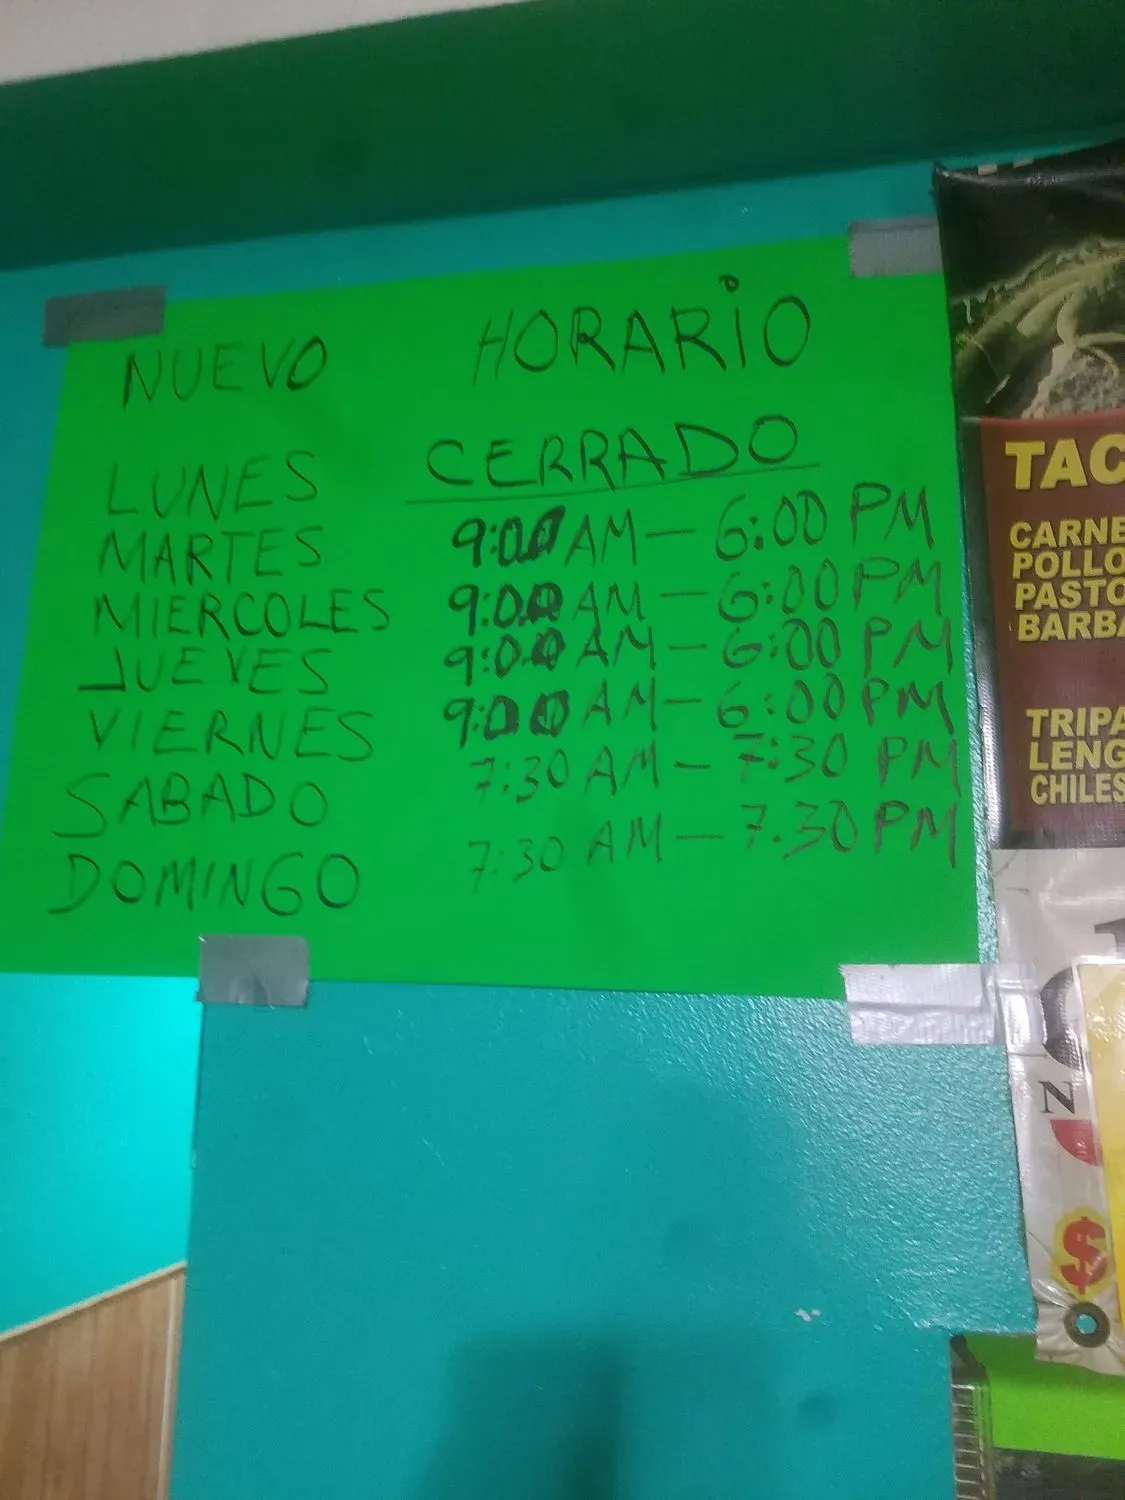 NUEVO HORARIO
LUNES CERRADO
MARTES 9:00 AM — 6:00 PM
MIERCOLES 9:00 AM — 6:00 PM
JUEVES 9:00 AM — 6:00 PM
VIERNES 9:00 AM — 6:00 PM
SABADO 7:30 AM — 7:30 PM
DOMINGO 7:30 AM — 7.30 PM
TAC
CARNE
POLLO
PASTO
BARBA
TRIPA
LENG
CHILES
N
$